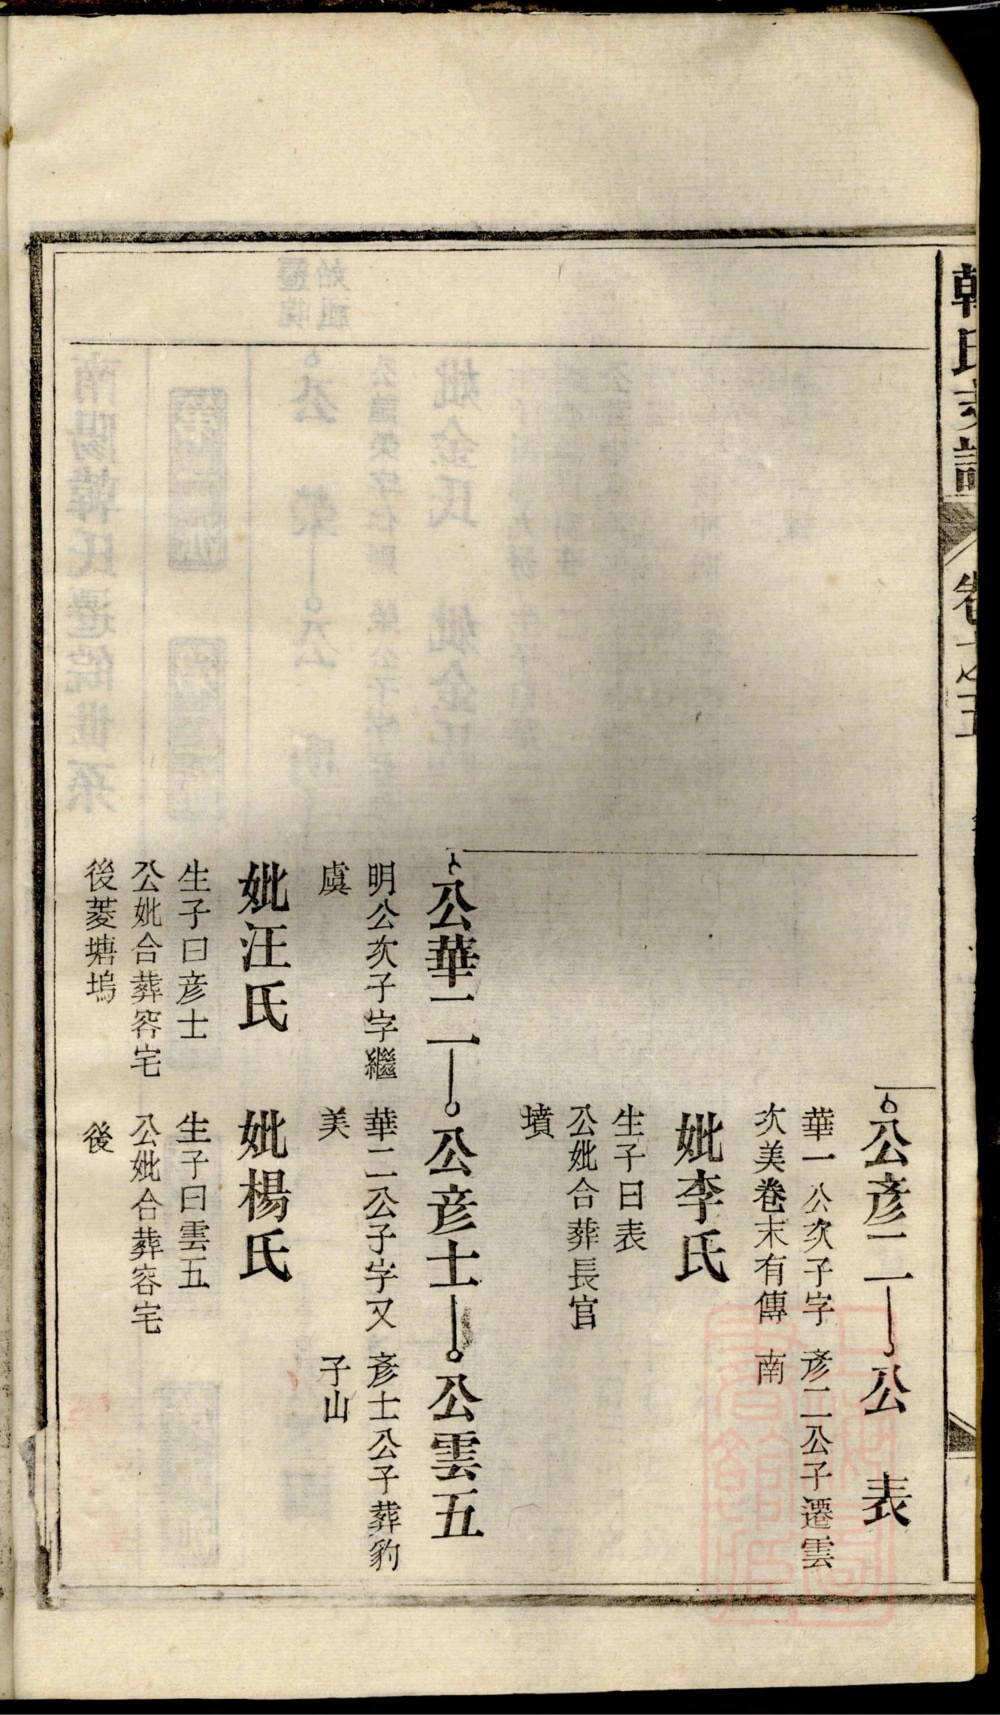 韓氏支譜
公彥二
公 表
華一公次子字
次美卷末有傳
彥二公子遷雲
南
妣李氏
生子曰表
公妣合葬長官
墳
公華二
公彥士
公雲五
明公次子字繼
虞
華二公子字又
美
彥士公子葬豹
子山
妣汪氏
妣楊氏
生子曰彥士
公妣合葬容宅
後菱塘塢
生子曰雲五
公妣合葬容宅
後